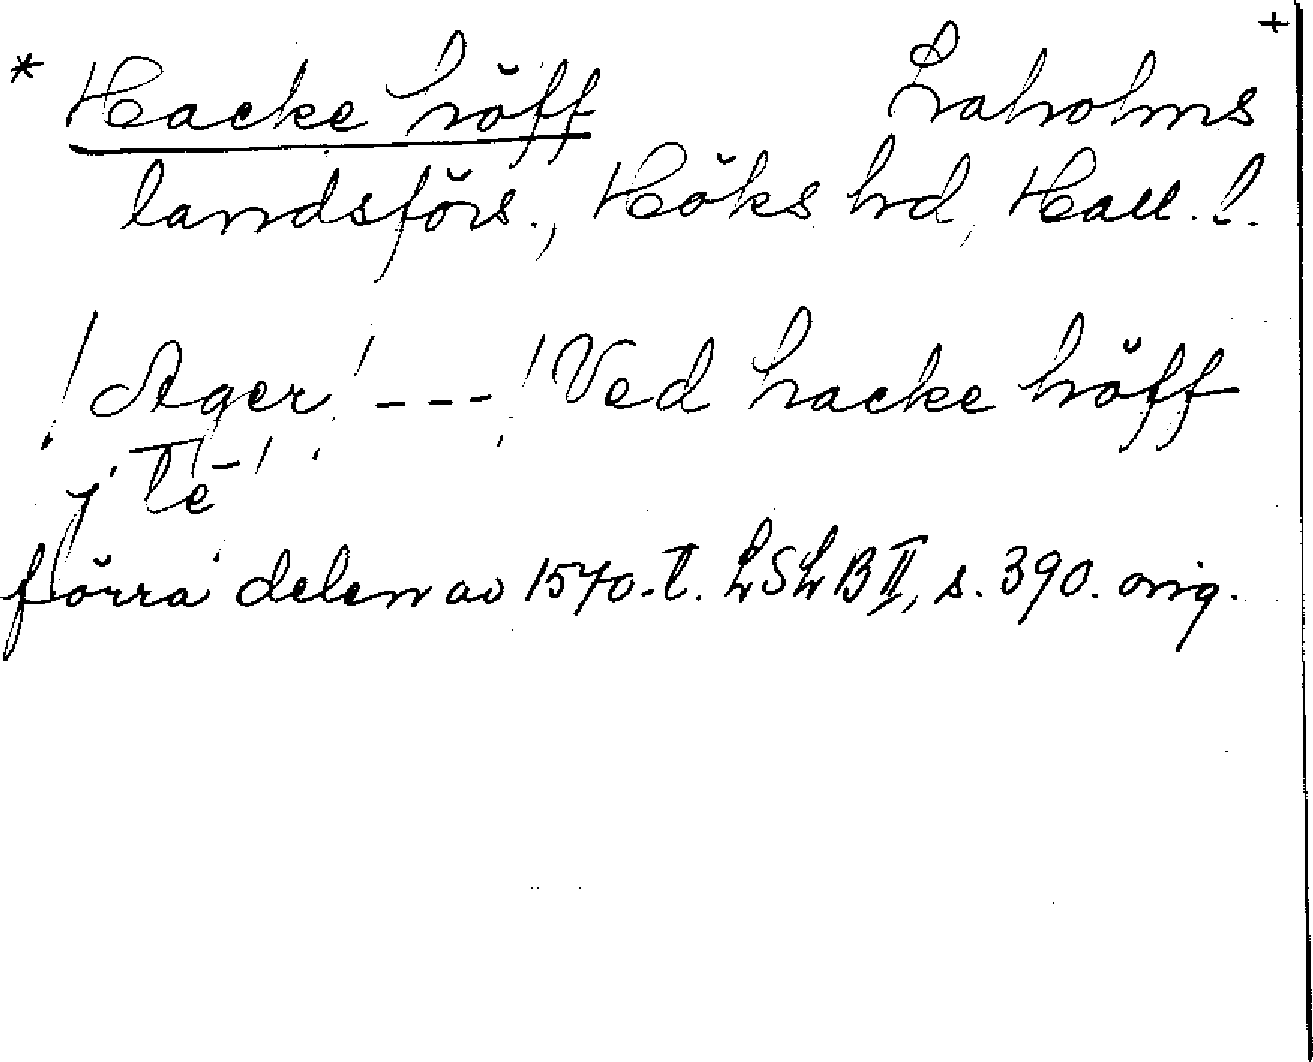 +
* Hacke höff Laholms
landsförs., Höks hd, Hall. l.
! Ager! ---! Ved hacke höff
j Tē!
förra delen av 1570-t. LSLB II, s. 390. orig.